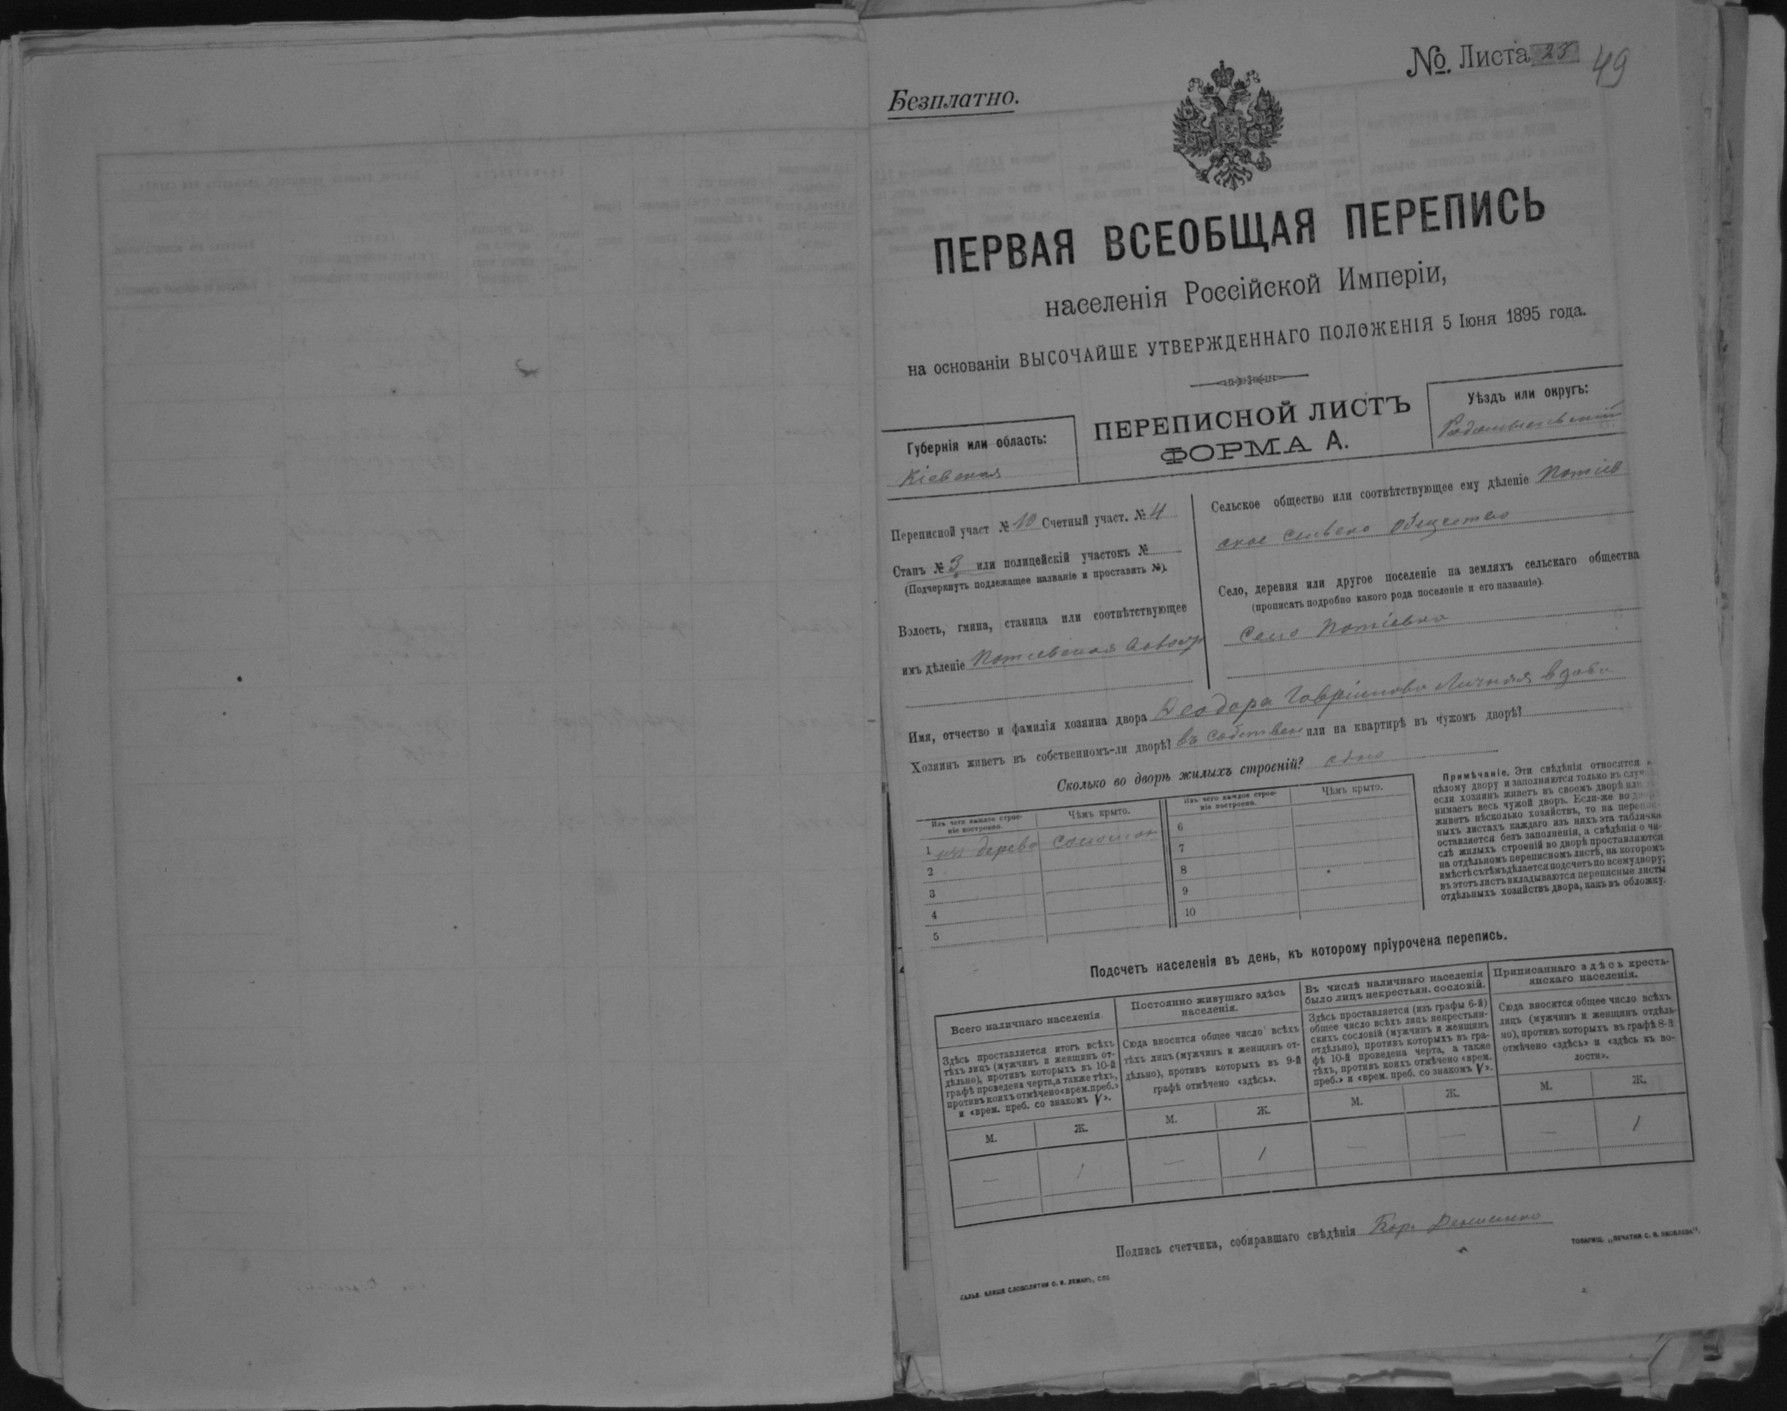 Безплатно.
№. Листа 25
49
ПЕРВАЯ ВСЕОБЩАЯ ПЕРЕПИСЬ
населенія Россійской Имперіи,
на основаніи ВЫСОЧАЙШЕ УТВЕРЖДЕННАГО ПОЛОЖЕНІЯ 5 Іюня 1895 года.
Губернія или область:
Кіевская
ПЕРЕПИСНОЙ ЛИСТЪ
ФОРМА А.
Уѣздъ или округъ:
Радомысльскій
Переписной участ № 10 Счетный участ. № 4
Станъ № 3 или полицейскій участокъ №
(Подчеркнуть подлежащее названіе и проставить №).
Волость, гмина, станица или соотвѣтствующее
имъ дѣленіе Потіевская
Сельское общество или соотвѣтствующее ему дѣленіе Потіев
ское сельско общество
Село, деревня или другое поселеніе на земляхъ сельскаго общества
(прописать подробно какого рода поселеніе и его названіе).
Село Потіевка
Имя, отчество и фамилія хозяина двора Деодора Гавріилова вдова
Хозяинъ живетъ въ собственномъ-ли дворѣ? въ собствен или на квартирѣ въ чужомъ дворѣ?
Сколько во дворѣ жилыхъ строеній? одно
Изъ чего каждое строе-
ніе построено.
Чѣмъ крыто.
1 изъ дерева соломою
2
3
4
5
Изъ чего каждое строе-
ніе построено.
Чѣмъ крыто.
6
7
8
9
10
Примѣчаніе. Эти свѣдѣнія относятся
цѣлому двору и заполняются только въ случ
если хозяинъ живетъ въ своемъ дворѣ или
нимаетъ весь чужой дворъ. Если-же во дворѣ
живетъ нѣсколько хозяйствъ, то на перепис-
ныхъ листахъ каждаго изъ нихъ эта табличка
оставляется безъ заполненія, а свѣдѣнія о чи-
слѣ жилыхъ строеній во дворѣ проставляются
на отдѣльномъ переписномъ листѣ, на которомъ
вмѣстѣ съ тѣмъ дѣлается подсчетъ по всему двору;
въ этотъ листъ вкладываются переписные листы
отдѣльныхъ хозяйствъ двора, какъ въ обложку.
Подсчетъ населенія въ день, къ которому пріурочена перепись.
Всего наличнаго населенія.
Здѣсь проставляется итогъ всѣхъ
тѣхъ лицъ (мужчинъ и женщинъ от-
дѣльно), противъ которыхъ въ 10-й
графѣ проведена черта, а также тѣхъ,
противъ коихъ отмѣчено «врем. преб.»
и «врем. преб. со знакомъ V».
М. Ж.
— 1
Постоянно живущаго здѣсь
населенія.
Сюда вносится общее число всѣхъ
тѣхъ лицъ (мужчинъ и женщинъ от-
дѣльно), противъ которыхъ въ 9-й
графѣ отмѣчено «здѣсь».
М. Ж.
— 1
Въ числѣ наличнаго населенія
было лицъ некрестьян. сословій.
Здѣсь проставляется (изъ графы 6-й)
общее число всѣхъ лицъ некрестьян-
скихъ сословій (мужчинъ и женщинъ
отдѣльно), противъ которыхъ въ гра-
фѣ 10-й проведена черта, а также
тѣхъ, противъ коихъ отмѣчено «врем.
преб.» и «врем. преб. со знакомъ V».
М. Ж.
— —
Приписаннаго здѣсь кресть-
янскаго населенія.
Сюда вносится общее число всѣхъ
лицъ (мужчинъ и женщинъ отдѣль-
но), противъ которыхъ въ графѣ 8-й
отмѣчено «здѣсь» и «здѣсь къ во-
лости».
М. Ж.
— 1
Подпись счетчика, собиравшаго свѣдѣнія
ГАЛЬВ. КЛИШЕ СЛОВОЛИТНИ О. И. ЛЕМАНЪ, СПБ
ТОВАРИЩ. „ПЕЧАТНЯ С. П. ЯКОВЛЕВА“.